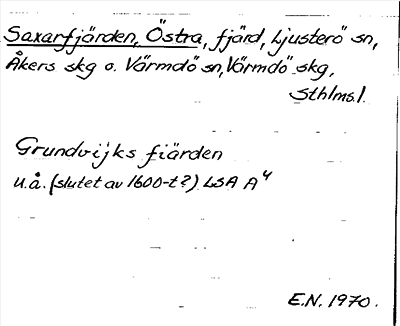 Saxarfjärden, Östra, fjärd, Ljusterö sn,
Åkers skg o. Värmdö sn, Värmdö skg,
Sthlms l.
Grundvijks fiärden
u.å. (slutet av 1600-t?) LSA A⁴
E.N. 1970.